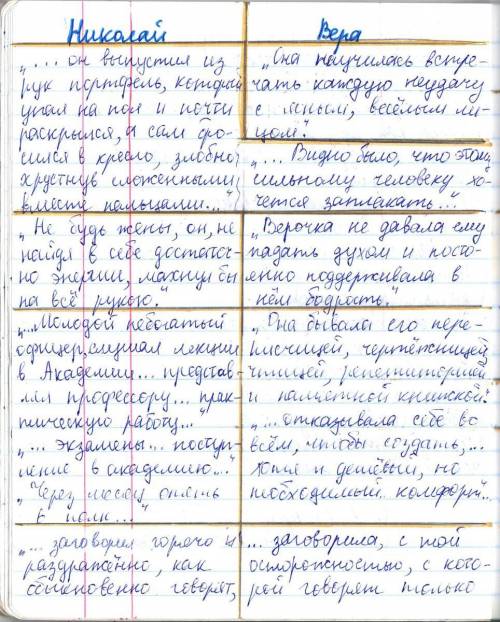 Николай
Вера
„... он выпустил из
рук портфель, который
упал на пол и почти
раскрылся, а сам бро-
сился в кресло, злобно
хрустнув сложенными
вместе пальцами..."
„Она научилась встре-
чать каждую неудачу
с ясным, весёлым ли-
цом."
„... Видно было, что этому
сильному человеку хо-
чется заплакать..."
„Не будь жены, он, не
найдя в себе достаточ-
но энергии, махнул бы
на всё рукою."
„Верочка не давала ему
падать духом и посто-
янно поддерживала в
нём бодрость."
„...Молодой небогатый
офицер, слушал лекции
в Академии... представ-
лял профессору... прак-
тическую работу..."
„... экзамены... поступ-
ление в академию..."
„Через месяц опять
в полк..."
„Она бывала его пере-
писчицей, чертёжницей,
чтицей, репетиторшей
и памятной книжкой."
„...отказывала себе во
всём, чтобы создать,...
хотя и дешёвый, но
необходимый комфорт..."
„... заговорил горячо и
раздражённо, как
обыкновенно говорят,
... заговорила, с той
осторожностью, с кото-
рой говорят только